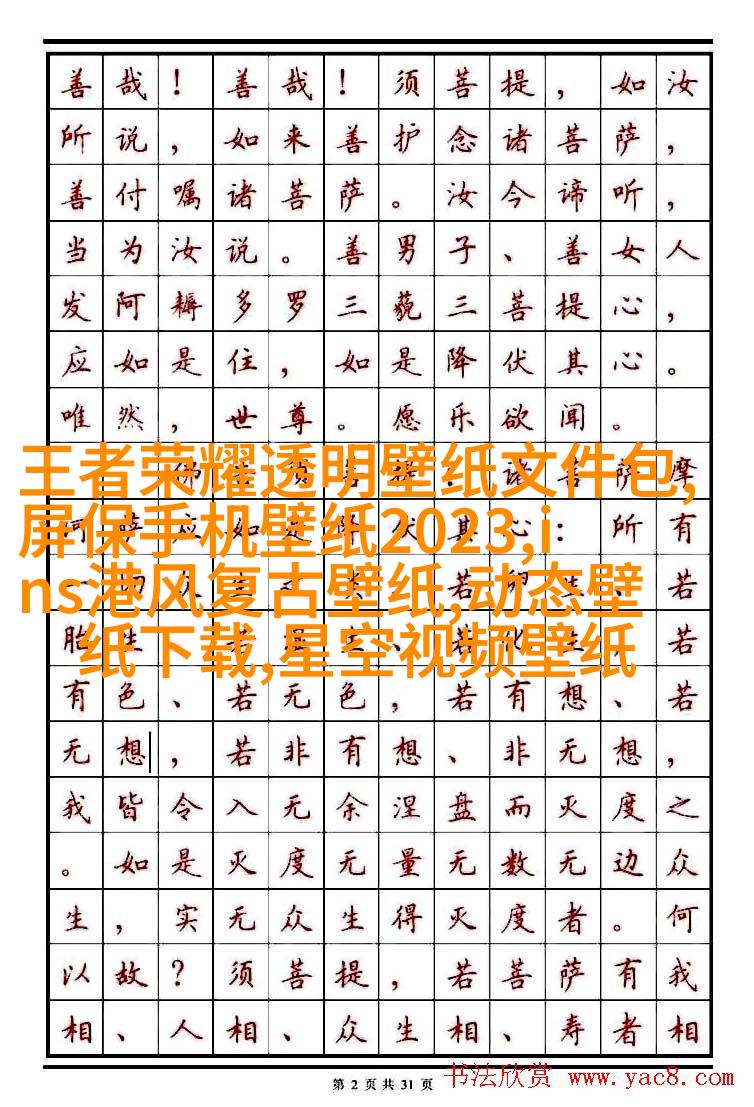 善哉！善哉！须菩提，如汝
所说，如来善护念诸菩萨，
善付嘱诸菩萨。汝今谛听，
当为汝说。善男子、善女人
发阿耨多罗三藐三菩提心，
应如是住，如是降伏其心。
唯然，世尊。愿乐欲闻。
佛提：诸菩萨摩
萨应如是降伏其心：所有
众若卵生、若
胎生、若化生若
王者荣耀透明壁纸文件包,
屏保手机壁纸2023,i
ns港风复古壁纸,动态壁
纸下载,星空视频壁纸
有色、若无色，若有想、若
无想，若非有想、非无想，
我皆令入无余涅盘而灭度之
。如是灭度无量无数无边众
生，实无众生得灭度者。何
以故？须菩提，若菩萨有我
相、人相、众生相、寿者相
第 2 页共 31 页
书法欣赏 www.yac8.com